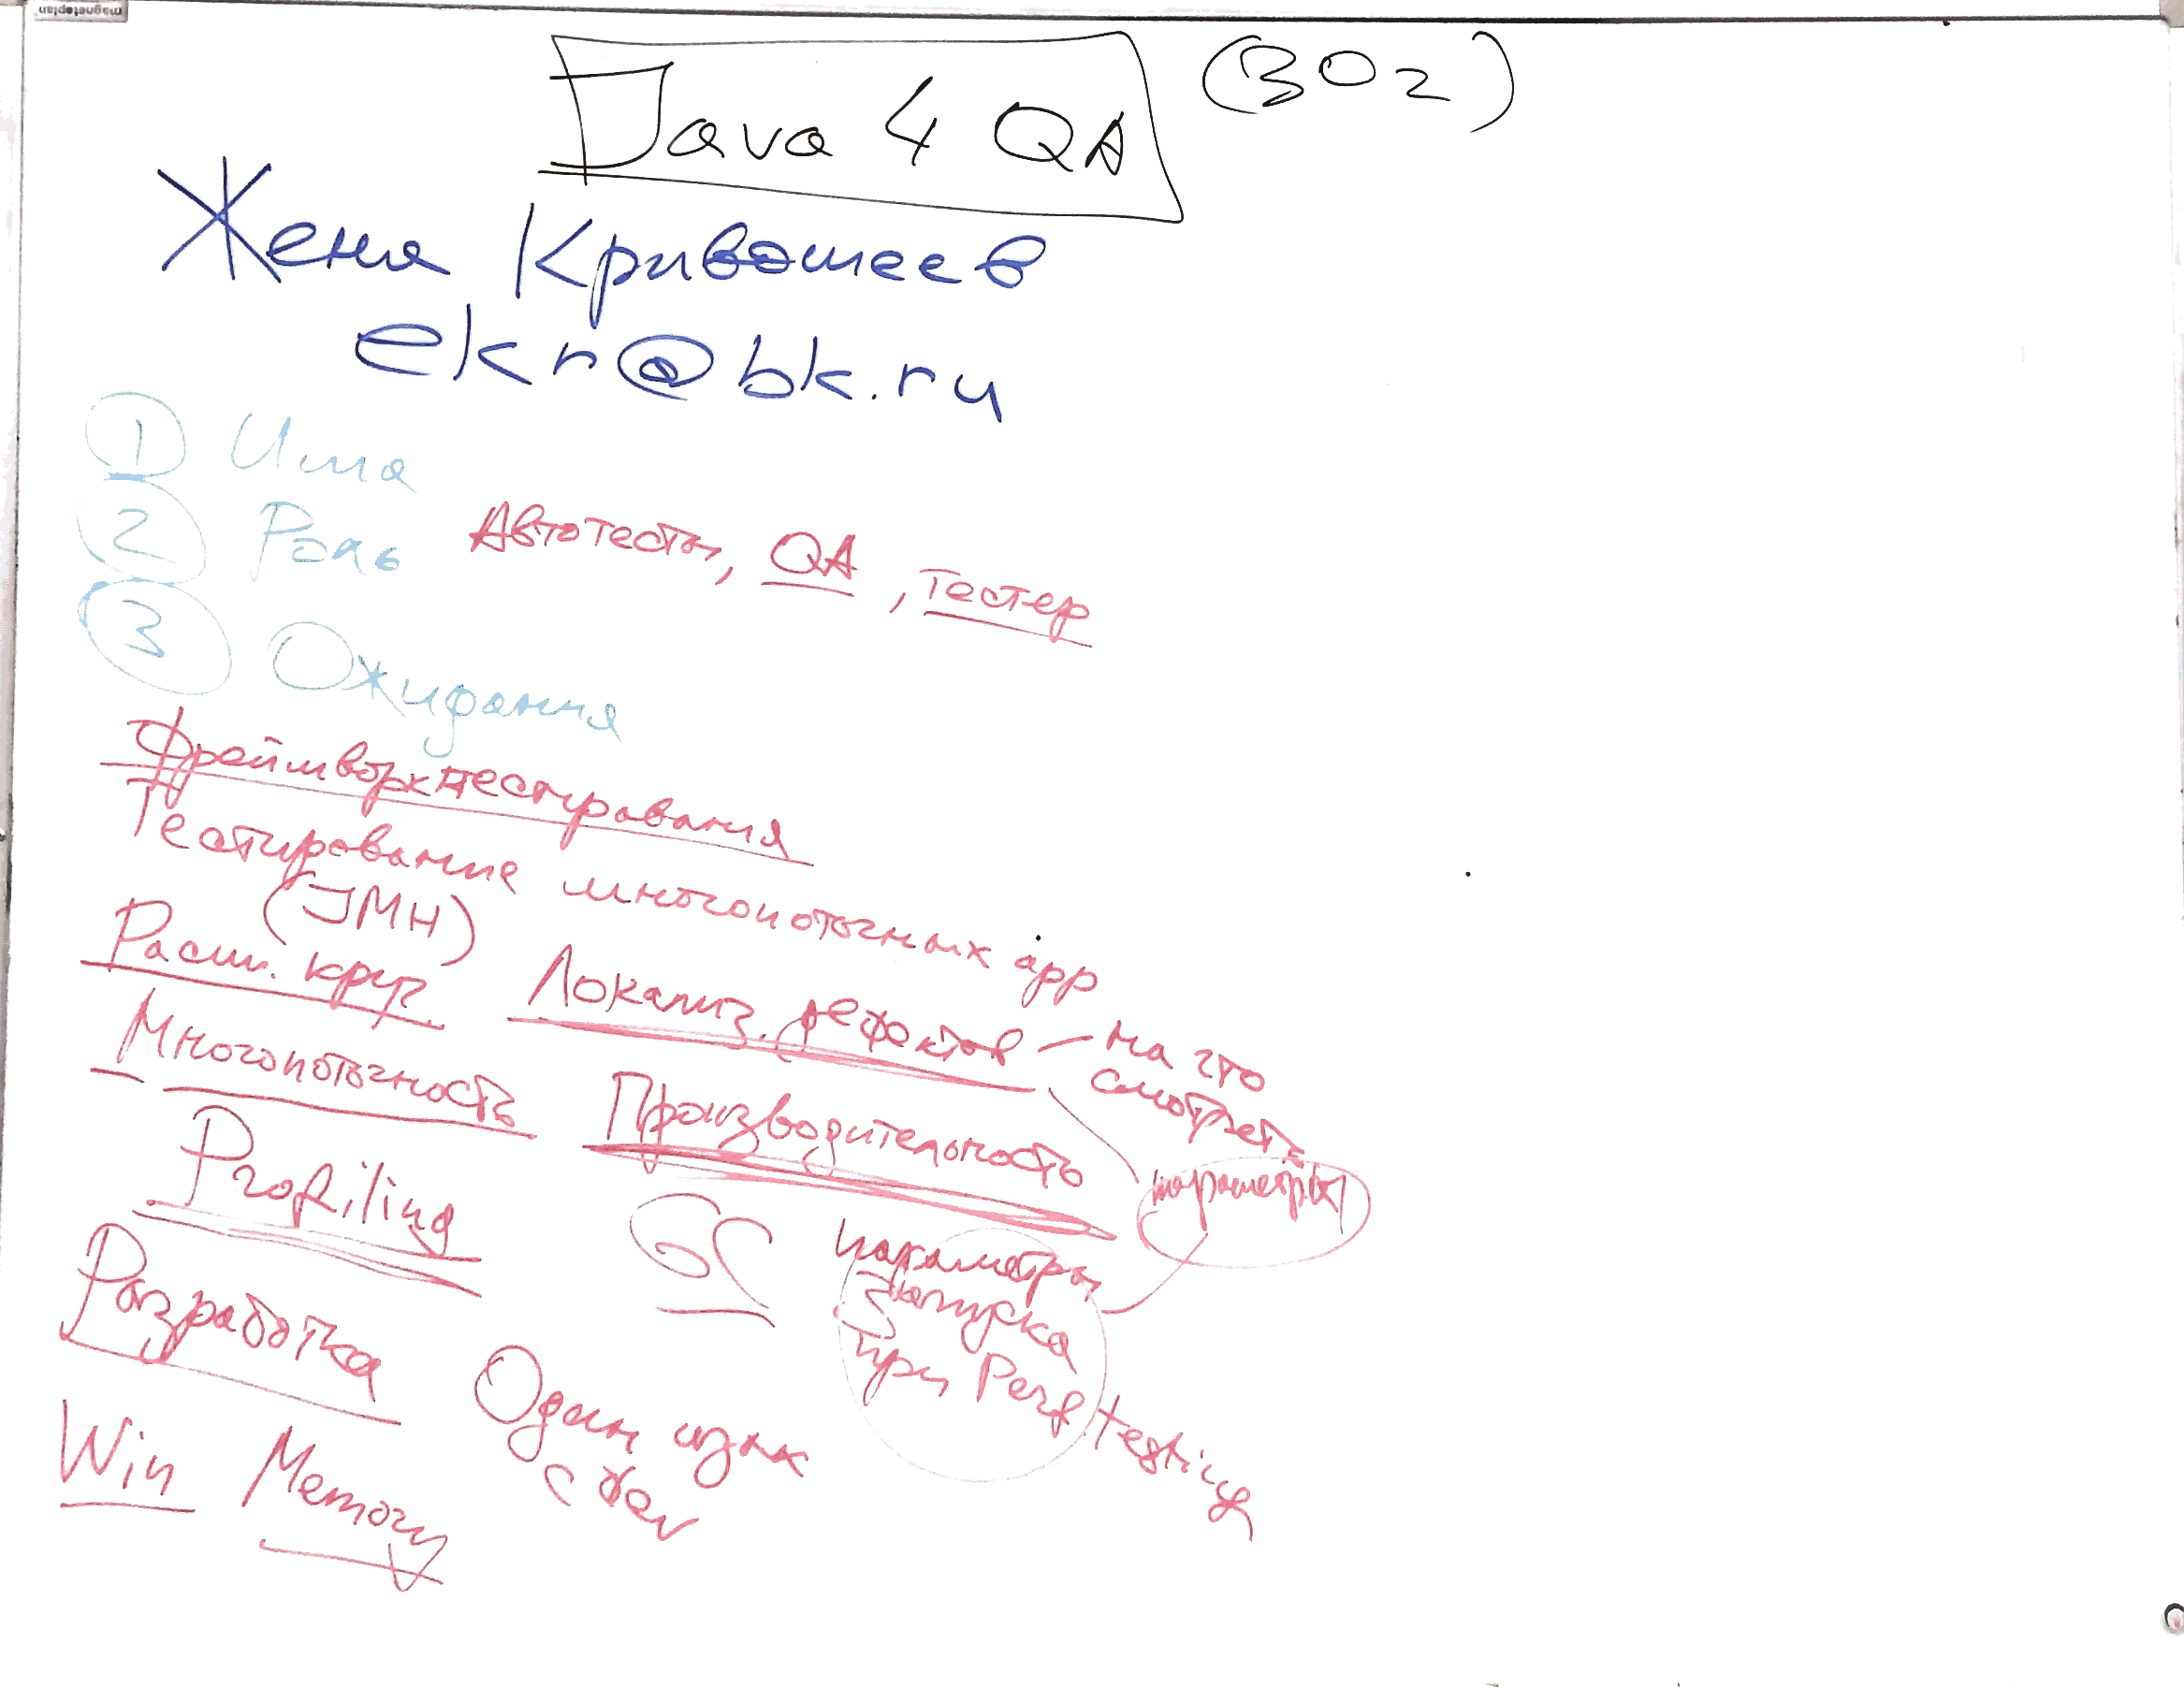 magnetoplan
Java 4 QA (302)
Женя Кривошеев
ekr@bk.ru
1 Имя
2 Роль Автотесты, QA, тестер
3 Ожидания
Фреймворк тестирования
Тестирование многопоточных app
(JMH)
Расш. круг. Локализ. дефектов – на что
смотреть
Многопоточность Производительность
параметры
Profiling GC параметры
запуска
при Perf testing
Разработка
Один язык
с dev
Win Memory